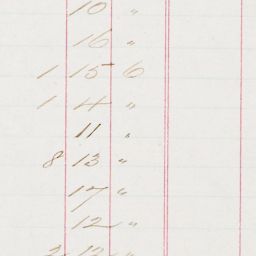 10 "
16 "
1 15 6
1 4 "
11 "
8 13 "
17 "
12 "
2 12 "